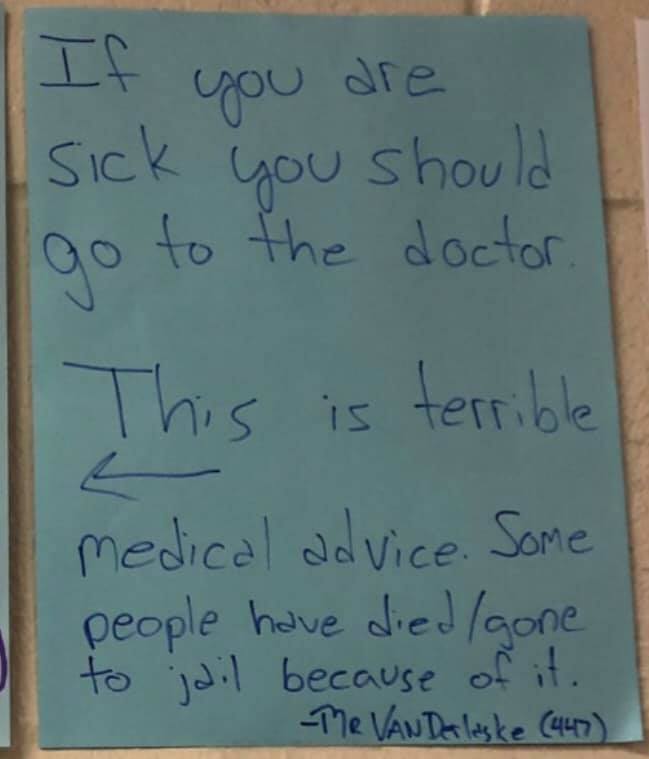 If you are
sick you should
go to the doctor.
This is terrible
←
medical advice. Some
people have died/gone
to jail because of it.
-Mr VANDerleske (447)